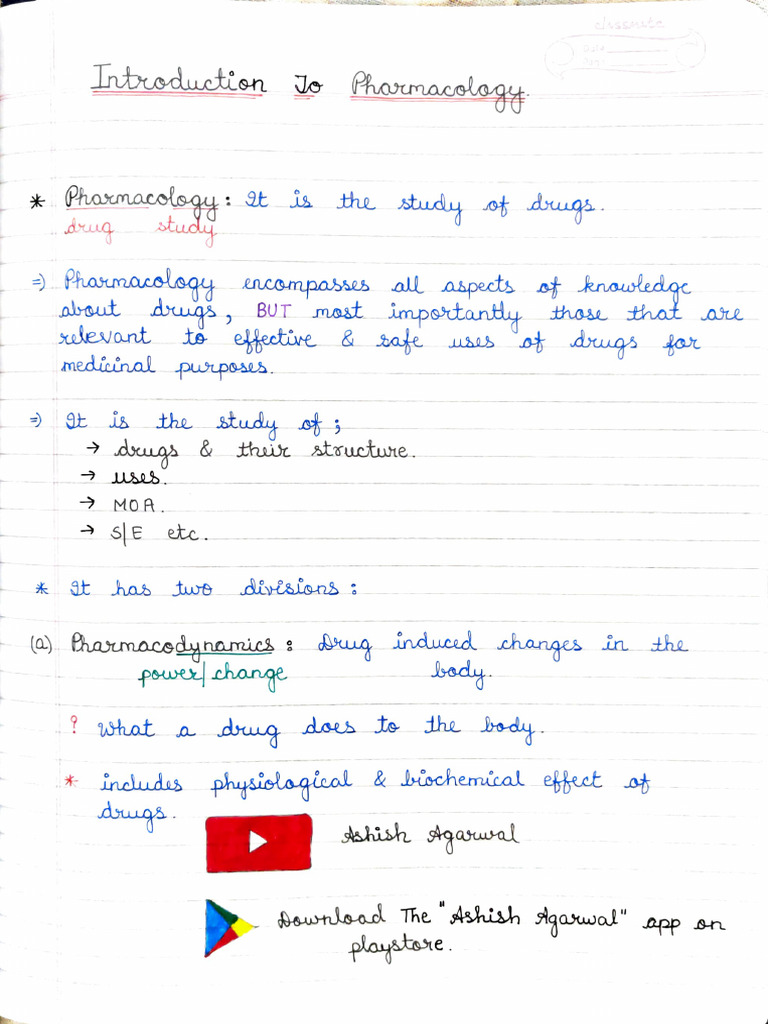 classmate
Date
Page
Introduction To Pharmacology.
* Pharmacology: It is the study of drugs.
drug study
=) Pharmacology encompasses all aspects of knowledge
about drugs, BUT most importantly those that are
relevant to effective & safe uses of drugs for
medicinal purposes.
=) It is the study of ;
→ drugs & their structure.
→ uses.
→ MOA.
→ S/E etc.
* It has two divisions :
(a) Pharmacodynamics : Drug induced changes in the
power/change body.
? What a drug does to the body.
* includes physiological & biochemical effect of
drugs.
Ashish Agarwal
Download The "Ashish Agarwal" app on
playstore.